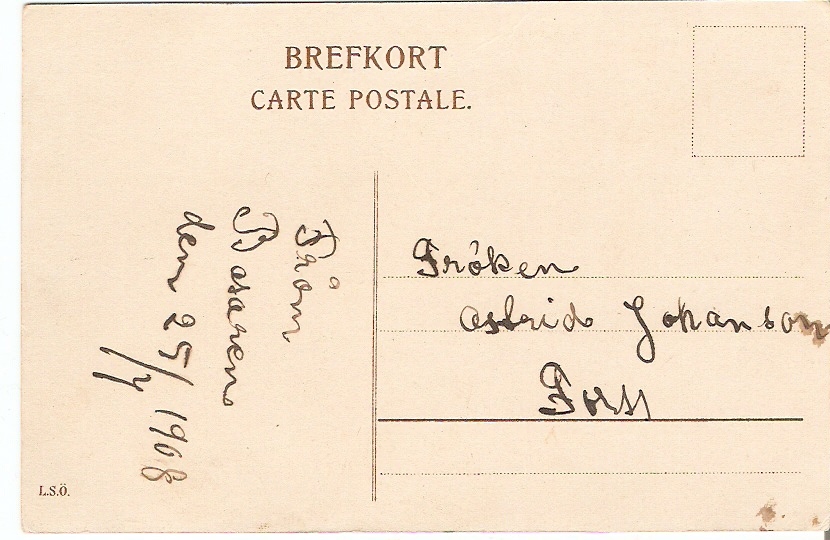 BREFKORT
CARTE POSTALE.
Från
Basaren
den 25/7 1908
Fröken
Astrid Johanson
Forss
L.S.Ö.